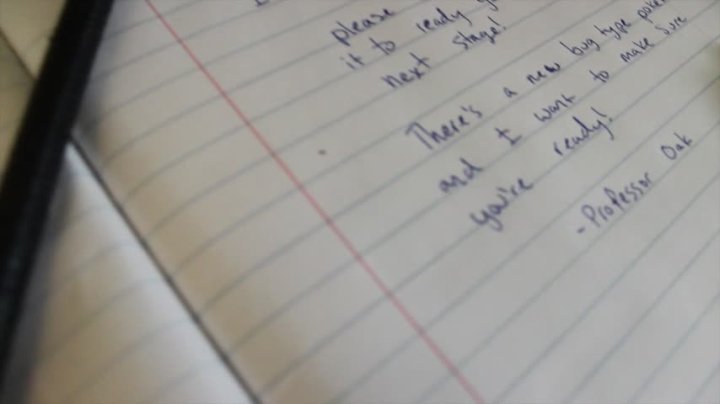 please
it to ready
next stage!
There's a new bug type
and I want to make sure
you're ready!
-Professor Oak